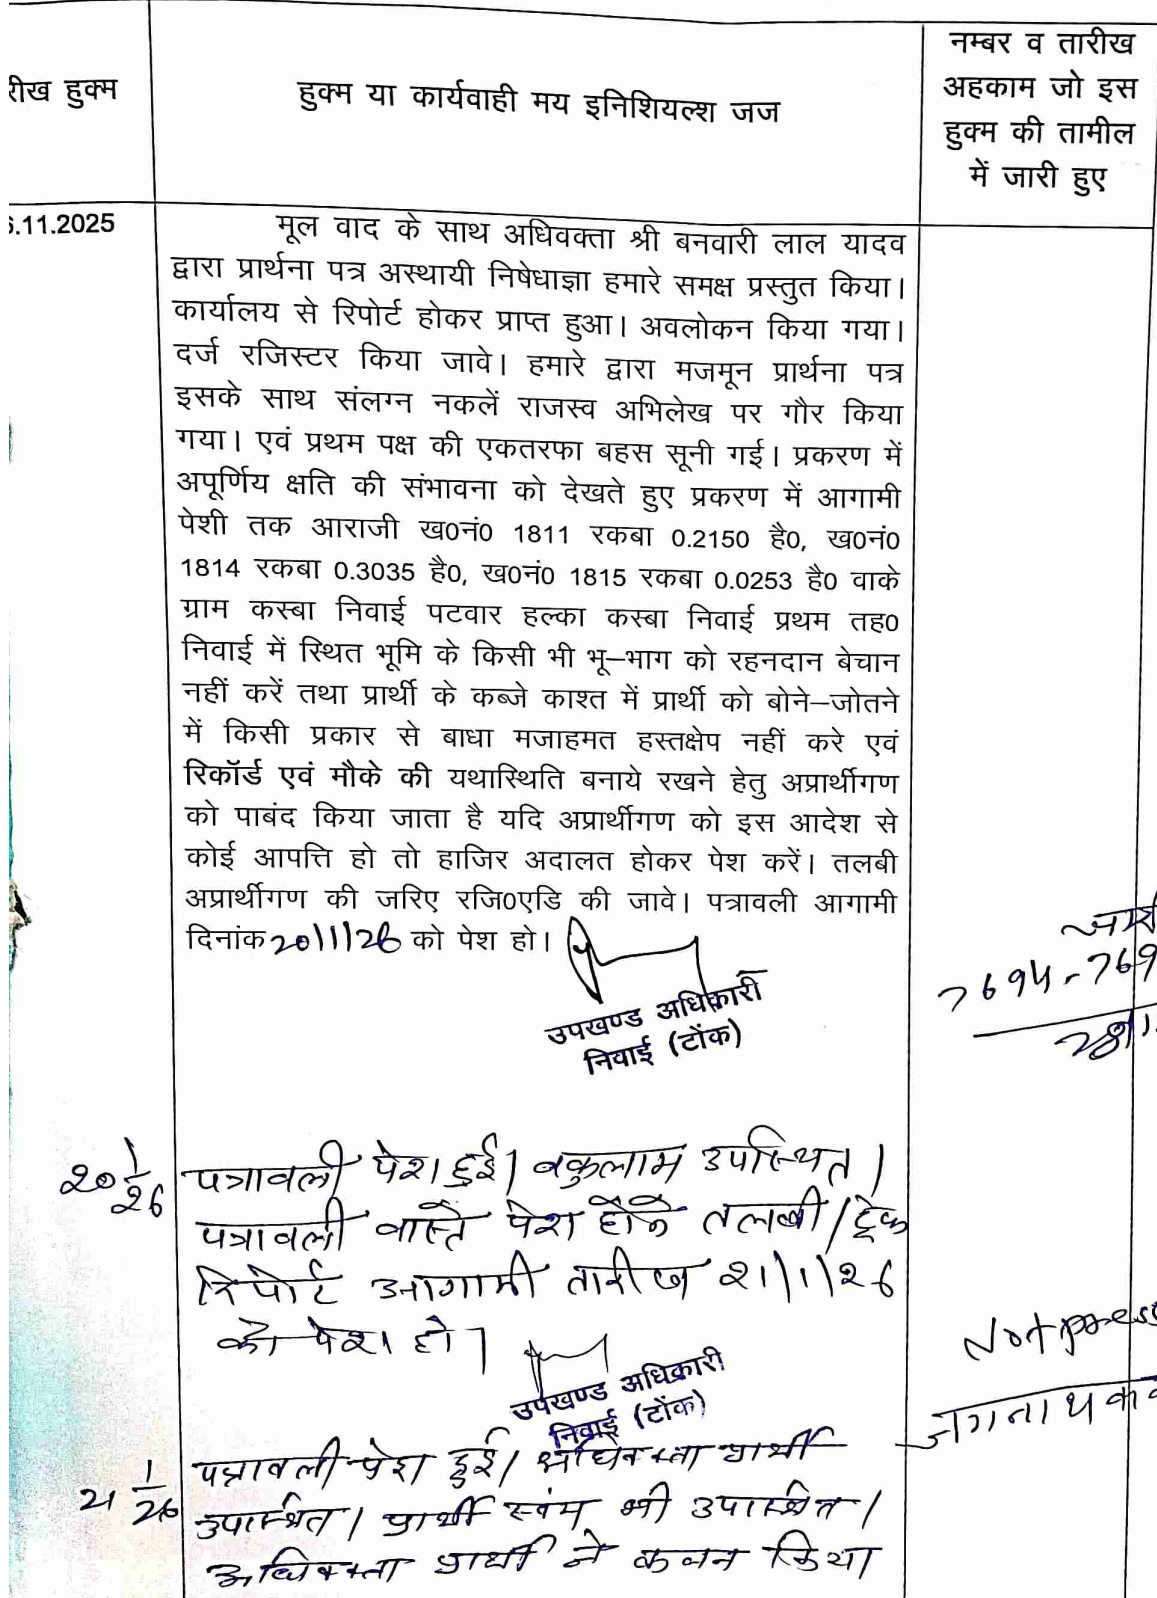 रीख हुक्म
हुक्म या कार्यवाही मय इनिशियल्श जज
नम्बर व तारीख
अहकाम जो इस
हुक्म की तामील
में जारी हुए
6.11.2025
मूल वाद के साथ अधिवक्ता श्री बनवारी लाल यादव
द्वारा प्रार्थना पत्र अस्थायी निषेधाज्ञा हमारे समक्ष प्रस्तुत किया।
कार्यालय से रिपोर्ट होकर प्राप्त हुआ। अवलोकन किया गया।
दर्ज रजिस्टर किया जावे। हमारे द्वारा मजमून प्रार्थना पत्र
इसके साथ संलग्न नकलें राजस्व अभिलेख पर गौर किया
गया। एवं प्रथम पक्ष की एकतरफा बहस सूनी गई। प्रकरण में
अपूर्णिय क्षति की संभावना को देखते हुए प्रकरण में आगामी
पेशी तक आराजी ख0नं0 1811 रकबा 0.2150 है0, ख0नं0
1814 रकबा 0.3035 है0, ख0नं0 1815 रकबा 0.0253 है0 वाके
ग्राम कस्बा निवाई पटवार हल्का कस्बा निवाई प्रथम तह0
निवाई में स्थित भूमि के किसी भी भू–भाग को रहनदान बेचान
नहीं करें तथा प्रार्थी के कब्जे काश्त में प्रार्थी को बोने–जोतने
में किसी प्रकार से बाधा मजाहमत हस्तक्षेप नहीं करे एवं
रिकॉर्ड एवं मौके की यथास्थिति बनाये रखने हेतु अप्रार्थीगण
को पाबंद किया जाता है यदि अप्रार्थीगण को इस आदेश से
कोई आपत्ति हो तो हाजिर अदालत होकर पेश करें। तलबी
अप्रार्थीगण की जरिए रजि0एडि की जावे। पत्रावली आगामी
दिनांक 20/1/26 को पेश हो।
उपखण्ड अधिकारी
निवाई (टोंक)
7694-769
20 1/26
पत्रावली पेश हुई। वकुलाम उपस्थित।
पत्रावली वास्ते पेश होने तलबी/
रिपोर्ट आगामी तारीख 21/1/26
को पेश हो।
उपखण्ड अधिकारी
निवाई (टोंक)
Not press
जगनाथ
21 1/26
पत्रावली पेश हुई। अधिवक्ता प्रार्थी
उपस्थित। प्रार्थी स्वंम भी उपस्थित।
अधिवक्ता प्रार्थी ने कथन किया